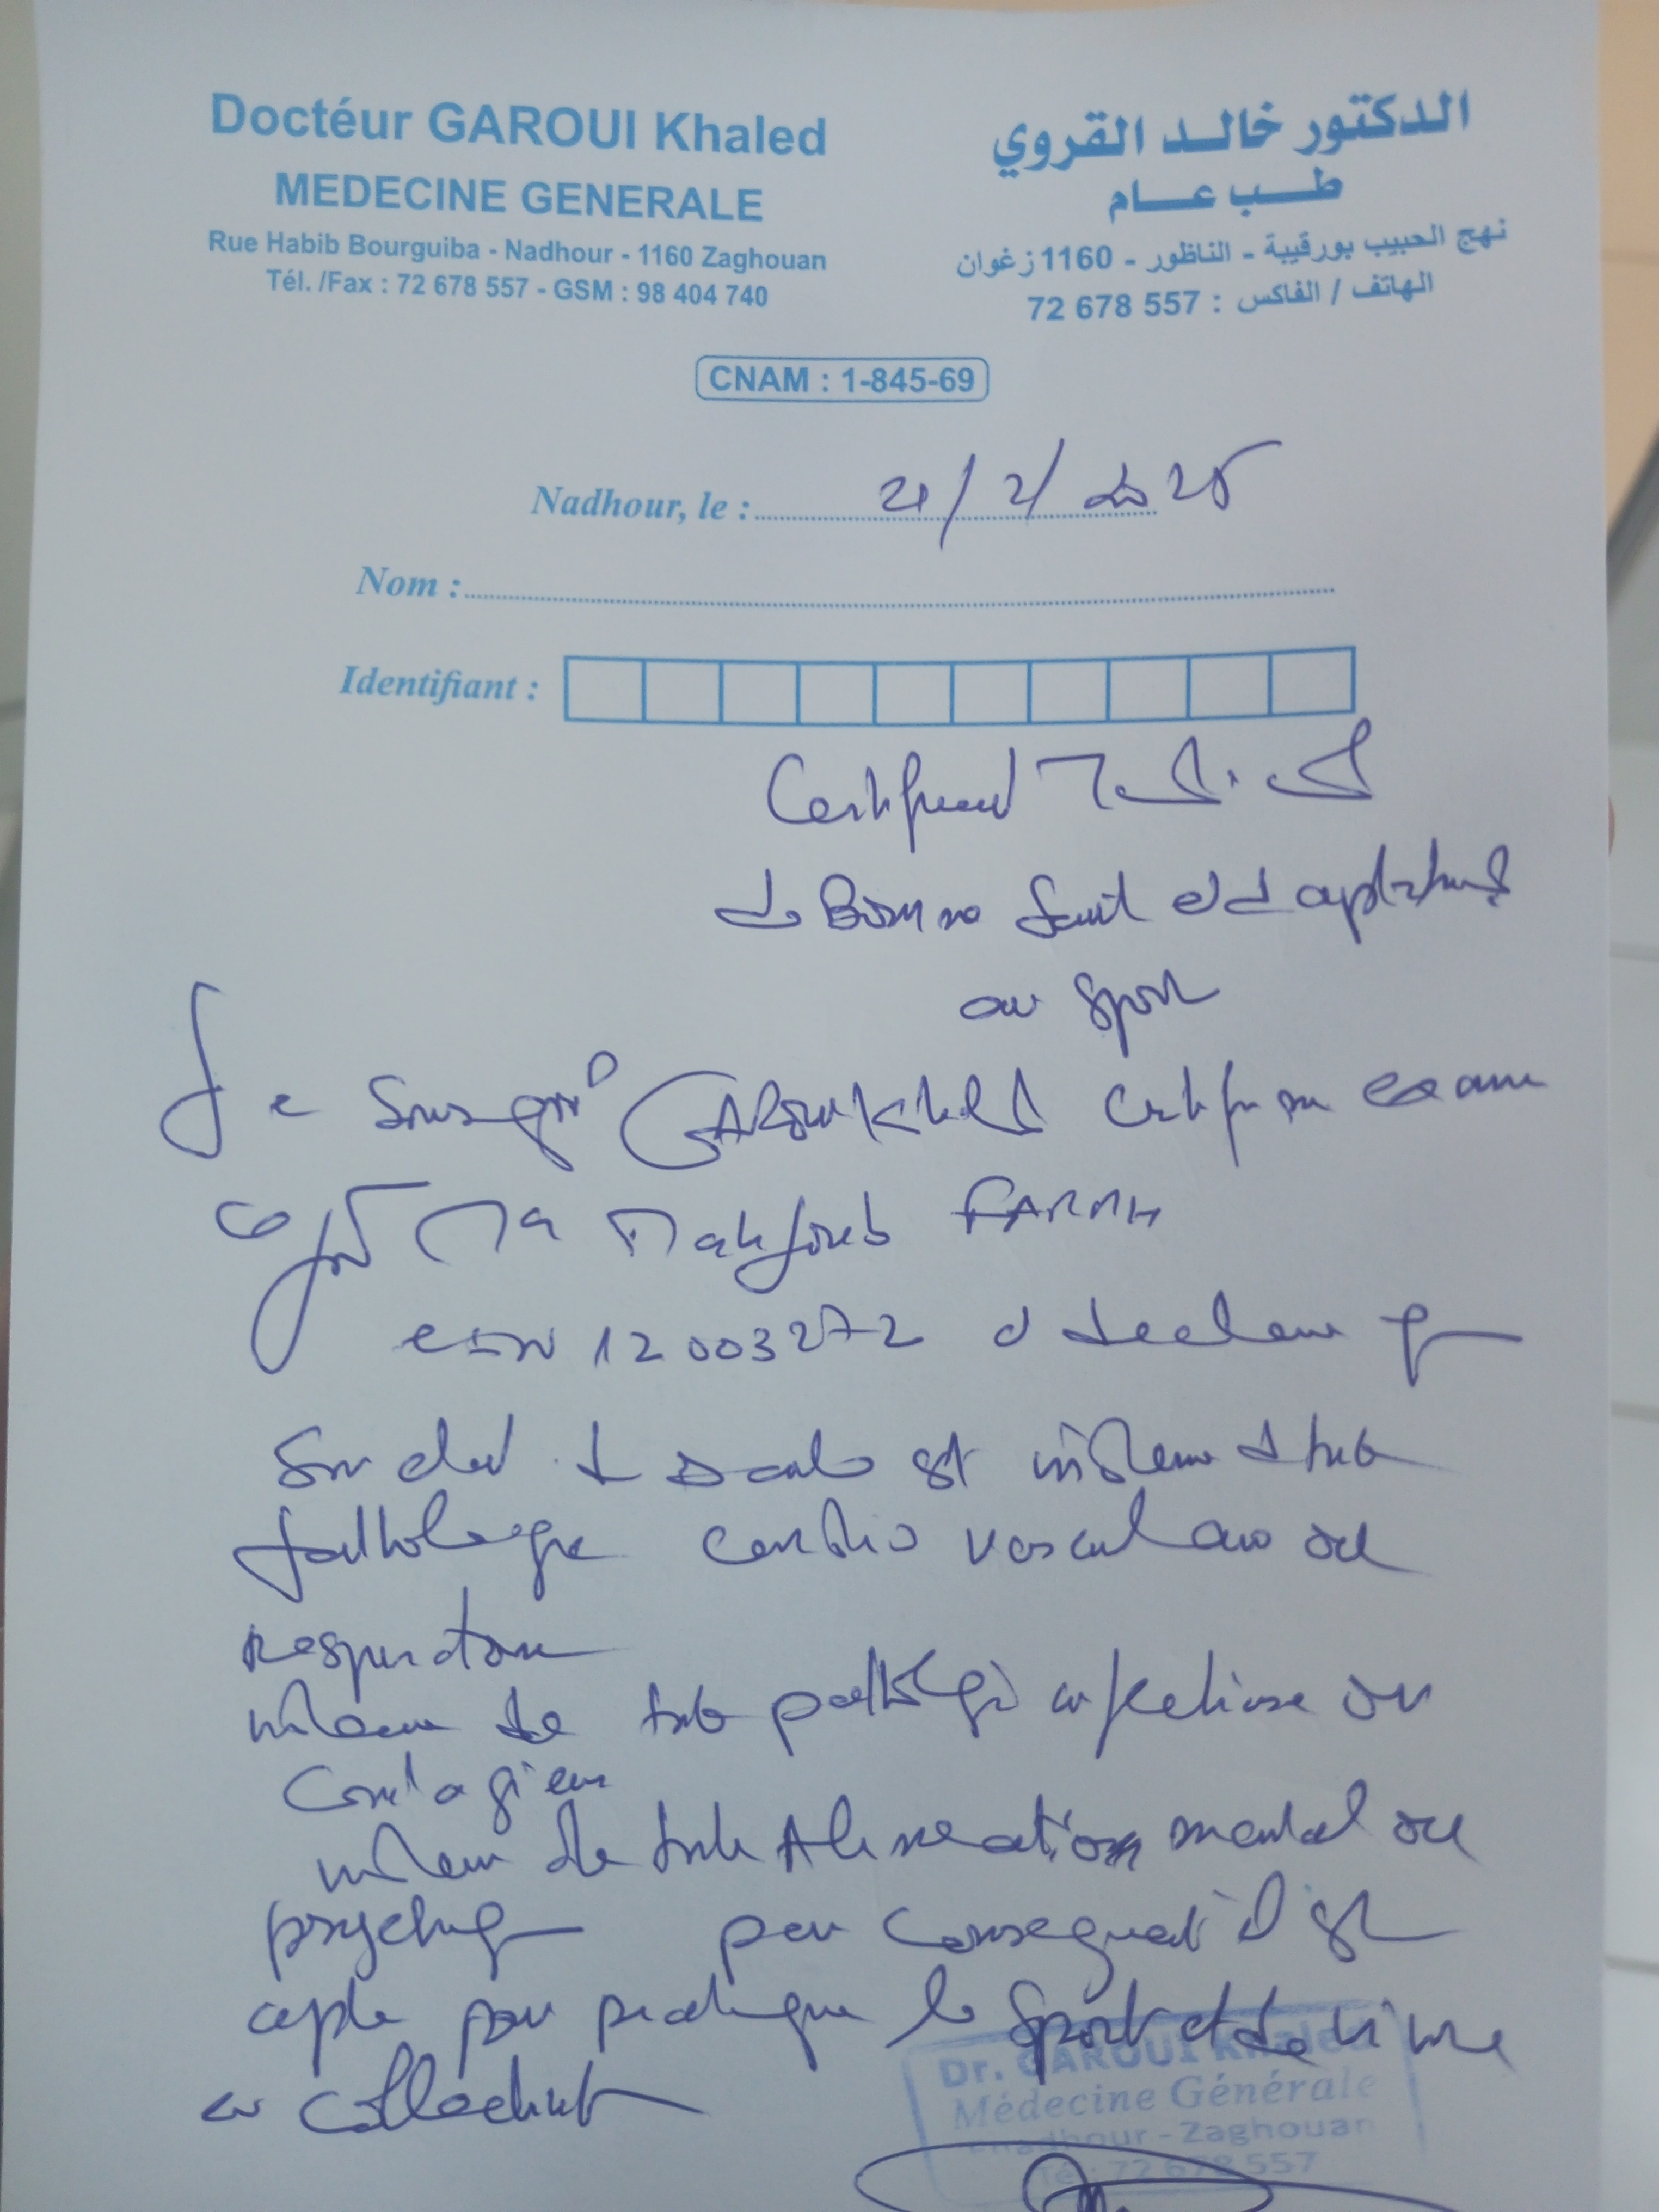 Doctéur GAROUI Khaled
MEDECINE GENERALE
Rue Habib Bourguiba - Nadhour - 1160 Zaghouan
Tél. /Fax : 72 678 557 - GSM : 98 404 740
الدكتور خالد القروي
طب عام
نهج الحبيب بورقيبة - الناظور - 1160 زغوان
الهاتف / الفاكس : 557 678 72
CNAM : 1-845-69
Nadhour, le : 21/2/2025
Nom :
Identifiant :
Certificat Médical
de Bonne Santé et d'aptitude
au Sport
Je Soussigné GAROUI Khaled Certifie
Mahjoub FARAH
CIN 12003272 et declare que
Son etat de Sante est indemne de toute
pathologie cardio vasculaire ou
respiratoire
indemne de toute pathologie infectieuse ou
Contagieuse
indemne de toute Alienation mental ou
psychique par consequent il est
apte pour pratique le Sport et de vivre
en Collectivité
Dr. GAROUI Khaled
Médecine Générale
Nadhour - Zaghouan
Tél : 72 678 557